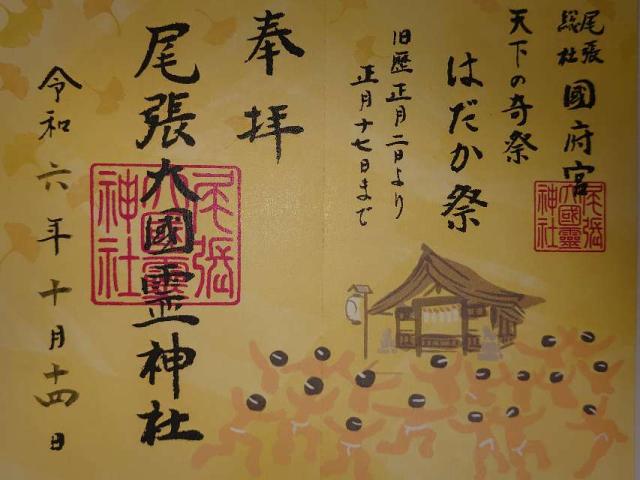 尾張
総社
國府宮
天下の奇祭
はだか祭
旧歴正月二日より
正月十七日まで
尾張
大國靈
神社
奉拝
尾張大國霊神社
尾張
大國靈
神社
令和六年十月十四日